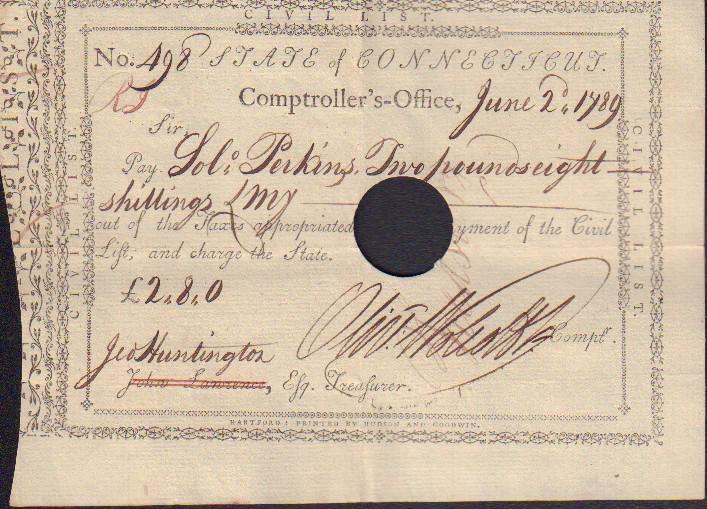 CIVIL LIST.
No: 498 STATE of CONNECTICUT.
Comptroller's-Office, June 2d. 1789
Sir,
Pay Solo. Perkins, Two pounds eight
shillings LMy
out of the Taxes appropriated yment of the Civil
List, and charge the State.
£2.8.0
Olivr. Wolcott Jr. Comptr.
Jed Huntington
John Lawrence, Esq. Treasurer.
HARTFORD: PRINTED BY HUDSON AND GOODWIN.
CIVIL LIST.
CIVIL LIST.